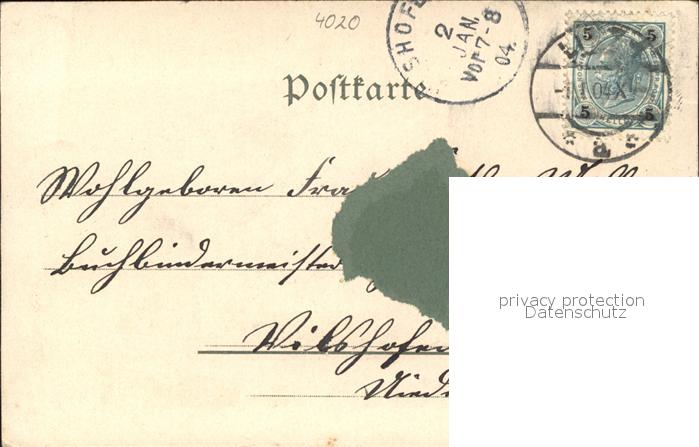 4020
SHOF
2
JAN.
VOR 7-8
04.
5 5
04 X
5 5
a
Postkarte
Wohlgeboren
Buchbindermeister
Vilshofen
privacy protection
Datenschutz